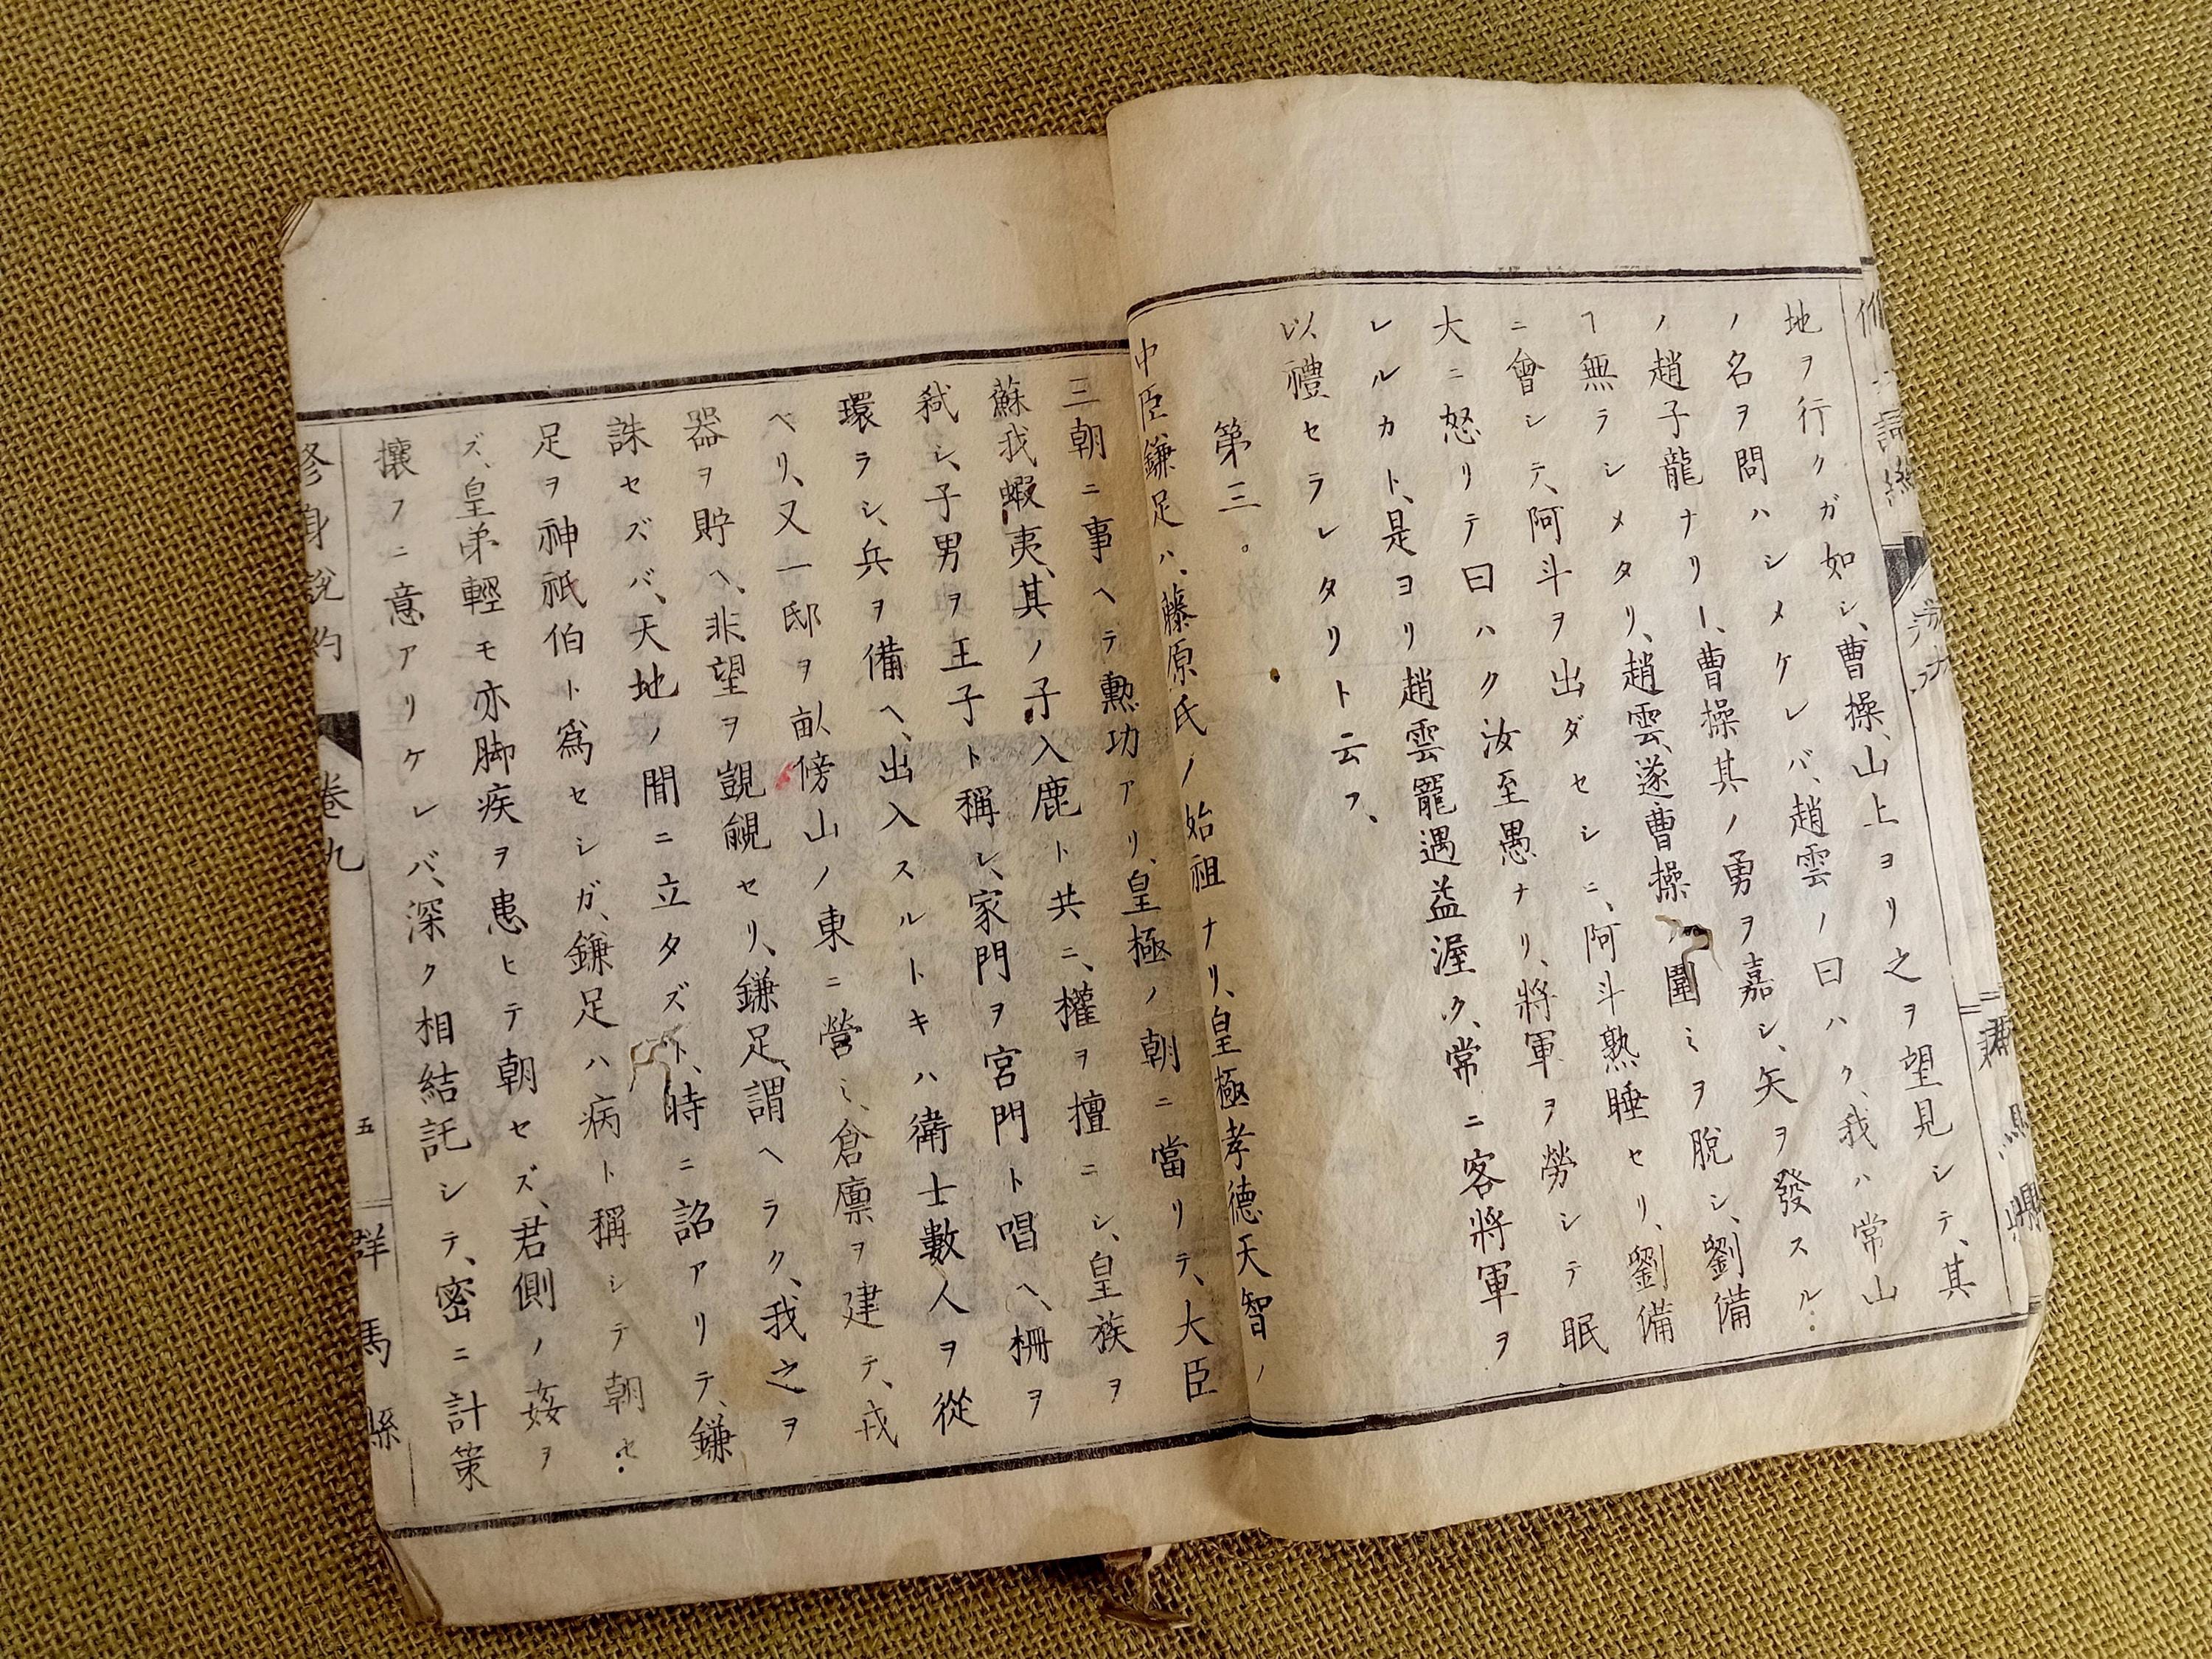 地ヲ行クガ如シ、曹操、山上ヨリ之ヲ望見シテ、其
ノ名ヲ問ハシメケレバ、趙雲ノ曰ハク、我ハ常山
ノ趙子龍ナリー、曹操其ノ勇ヲ嘉シ、矢ヲ發スル
ヿ無ラシメタリ、趙雲、遂曹操ノ圍ミヲ脫シ、劉備
ニ會シテ、阿斗ヲ出ダセシニ、阿斗熟睡セリ、劉備
大ニ怒リテ曰ハク汝至愚ナリ、將軍ヲ勞シテ眠
レルカト、是ヨリ趙雲寵遇益渥ク、常ニ客將軍ヲ
以禮セラレタリト云フ、
第三。
中臣鎌足ハ、藤原氏ノ始祖ナリ、皇極孝德天智ノ
三朝ニ事ヘテ勲功アリ、皇極ノ朝ニ當リテ、大臣
蘇我蝦夷、其ノ子入鹿ト共ニ、權ヲ擅ニシ、皇族ヲ
弑シ、子男ヲ王子ト稱シ、家門ヲ宮門ト唱ヘ、柵ヲ
環ラシ、兵ヲ備ヘ、出入スルトキハ衛士數人ヲ從
ヘリ、又一邸ヲ畝傍山ノ東ニ營ミ、倉廩ヲ建テ、戎
器ヲ貯ヘ、非望ヲ覬覦セリ、鎌足、謂ヘラク、我之ヲ
誅セズバ、天地ノ間ニ立タズト、時ニ詔アリテ、鎌
足ヲ神祇伯ト爲セシガ、鎌足ハ病ト稱シテ朝セ
ズ、皇弟輕モ亦脚疾ヲ患ヒテ朝セズ、君側ノ姦ヲ
攘フニ意アリケレバ、深ク相結託シテ、密ニ計策
修身說約 卷九 五 群馬縣